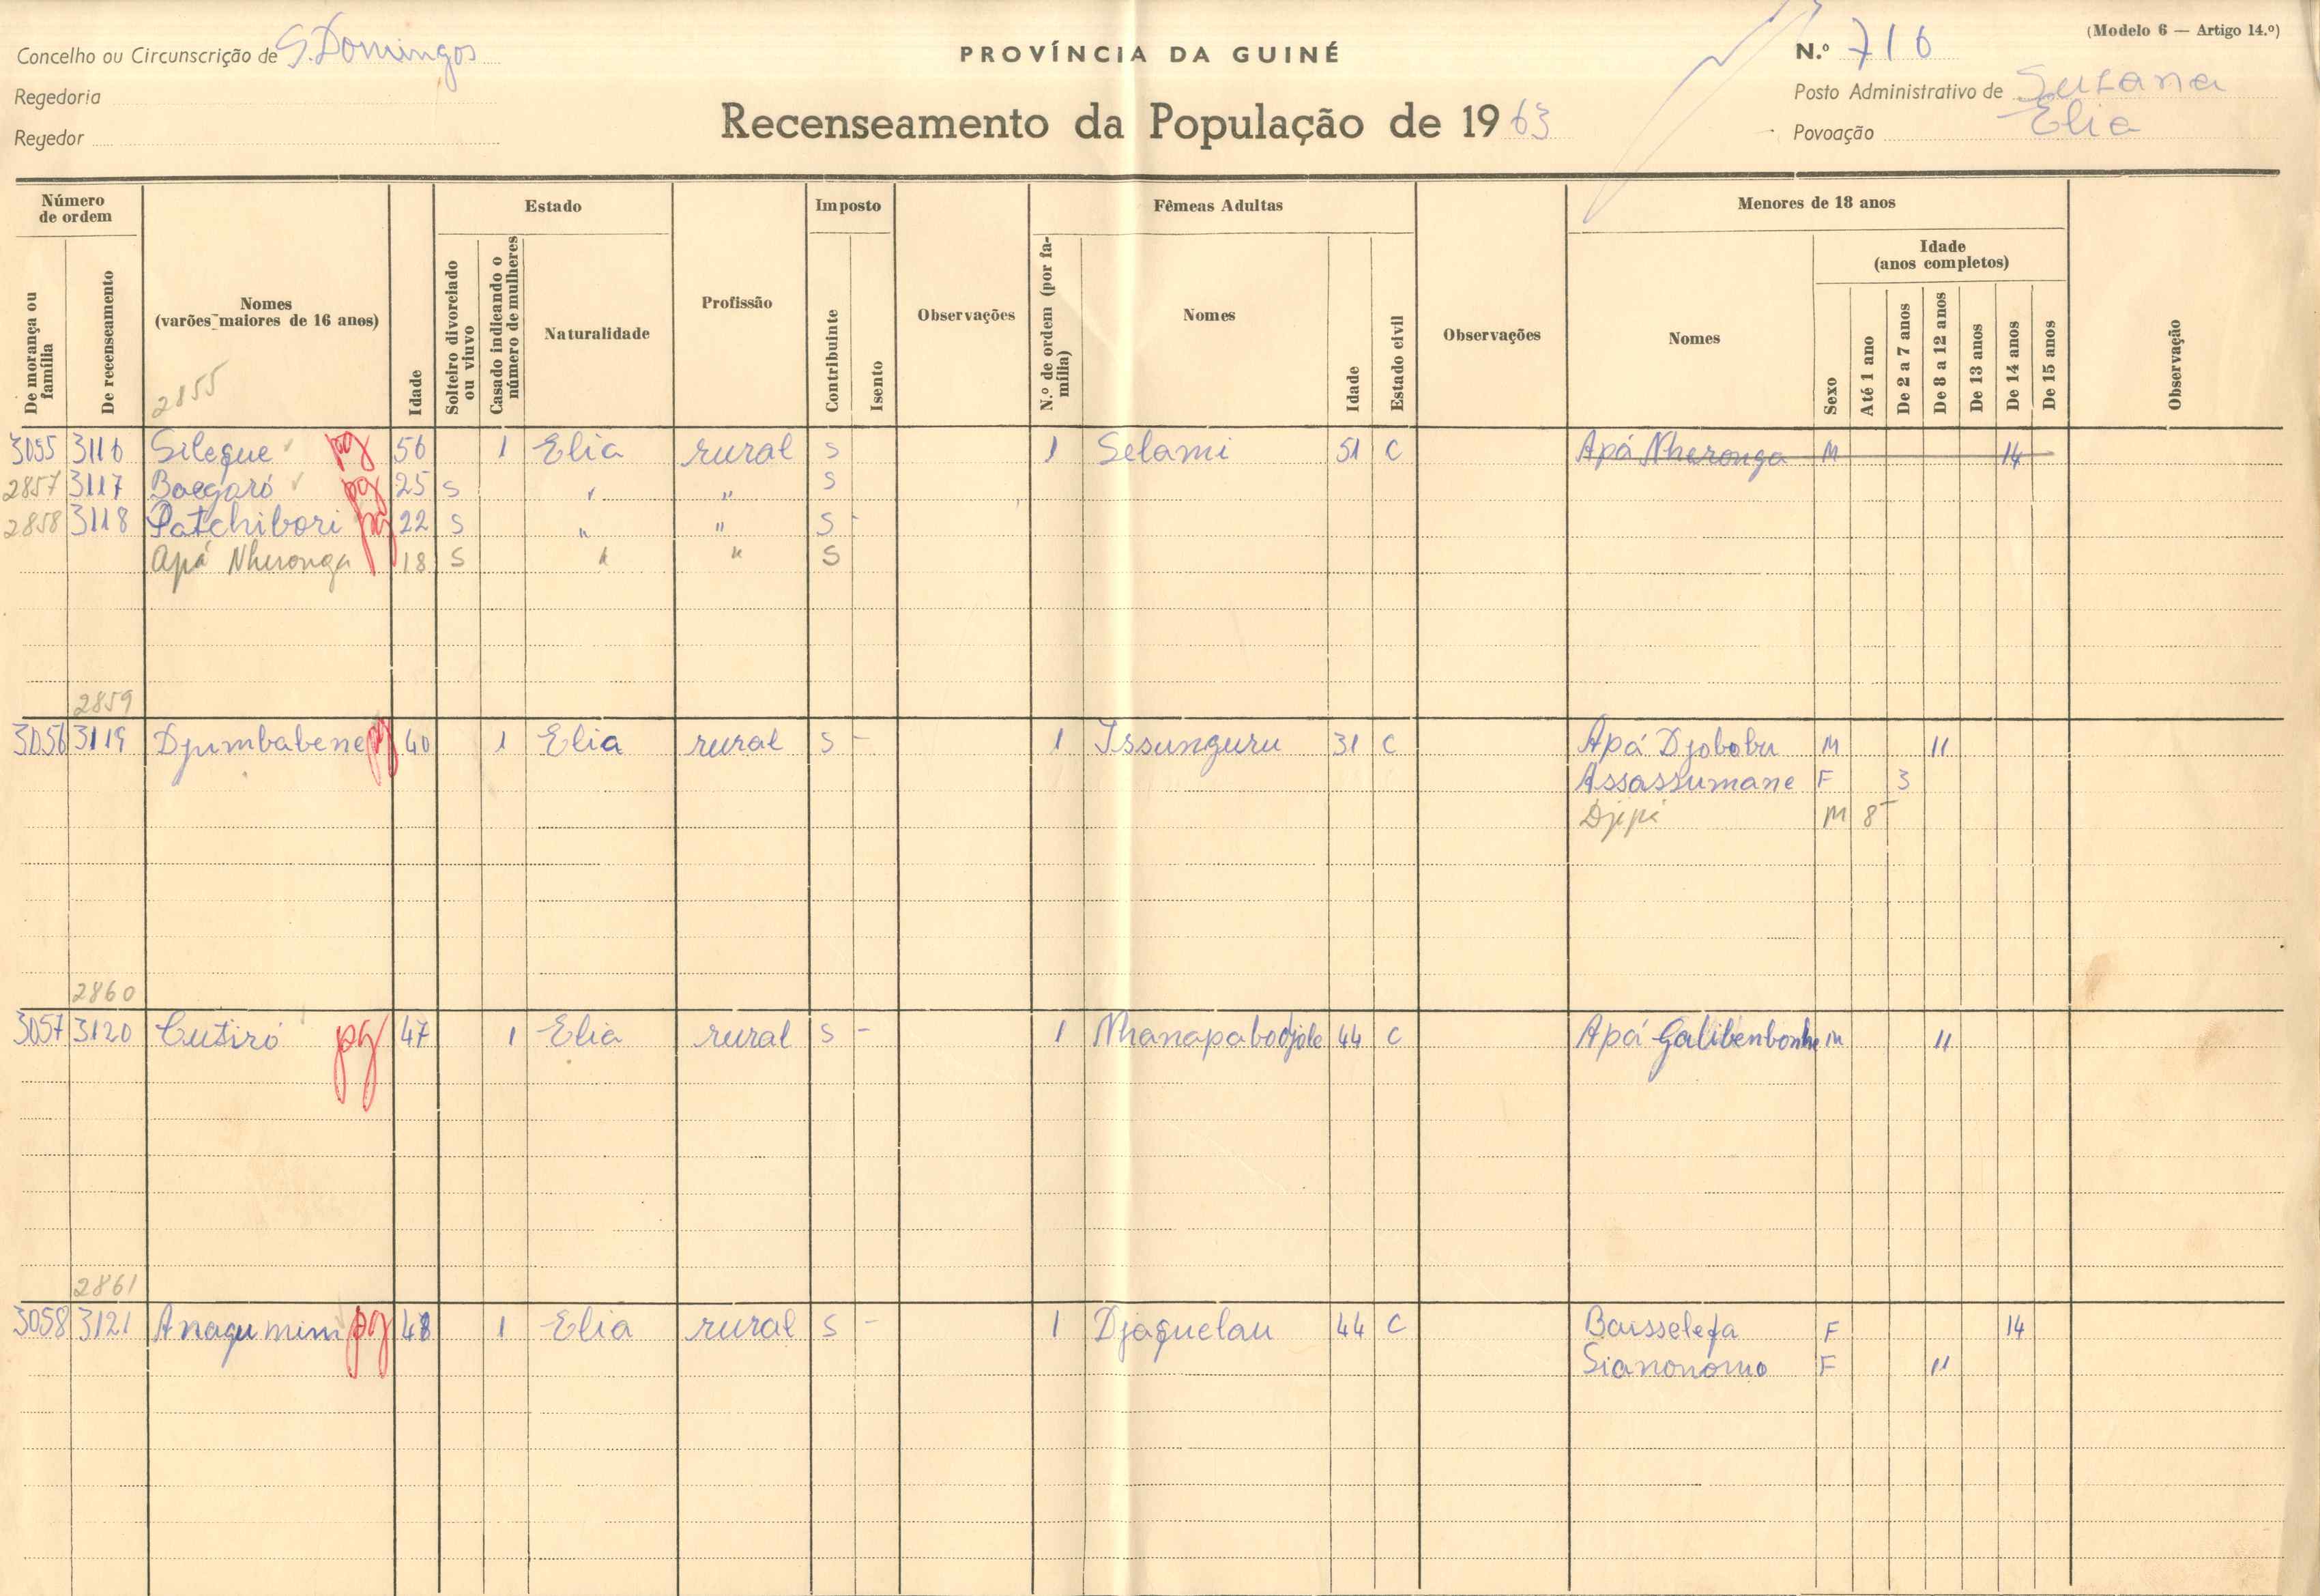 Concelho ou Circunscrição de S. Domingos
PROVÍNCIA DA GUINÉ
N.º 716
(Modelo 6 — Artigo 14.º)
Regedoria
Posto Administrativo de Suzana
Regedor
Recenseamento da População de 1963
Povoação Elia
Número de ordem
Estado
Imposto
Fêmeas Adultas
Menores de 18 anos
De morança ou família
De recenseamento
Nomes (varões maiores de 16 anos)
2855
Idade
Solteiro divorciado ou viuvo
Casado indicando o número de mulheres
Naturalidade
Profissão
Contribuinte
Isento
Observações
N.º de ordem (por família)
Nomes
Idade
Estado civil
Observações
Nomes
Sexo
Idade (anos completos)
Até 1 ano
De 2 a 7 anos
De 8 a 12 anos
De 13 anos
De 14 anos
De 15 anos
Observação
3055 3116 Sileque pg 56 1 Elia rural S 1 Selami 51 C Apá Nheronga M 14
2857 3117 Baegaró pg 25 S " " S
2858 3118 Patchibori pg 22 S " " S -
Apá Nheronga 18 S " " S
2859
3056 3119 Djumbabene pg 40 1 Elia rural S - 1 Issunguru 31 C Apá Djobobu M 11
Assassumane F 3
Djipi M 8
2860
3057 3120 Cutiró pg 47 1 Elia rural S - 1 Nhanapabodjole 44 C Apá Galibenbonhe M 11
2861
3058 3121 Anagumim pg 48 1 Elia rural S - 1 Djaquelau 44 C Baisselefa F 14
Sianonomo F 11